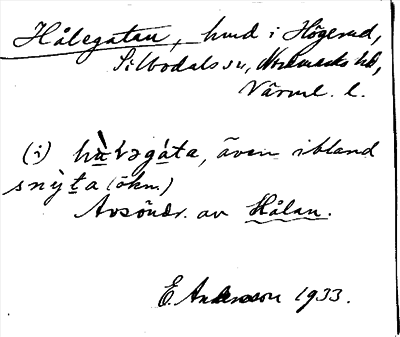 Hålegatan, hmd i Högerud,
Silbodals sn, Nordmarks hd,
Värml. l.
(i) hὰləgáta, även ibland
snỳta (ökn.)
Avsöndr. av Hålan.
E. Andersson 1933.